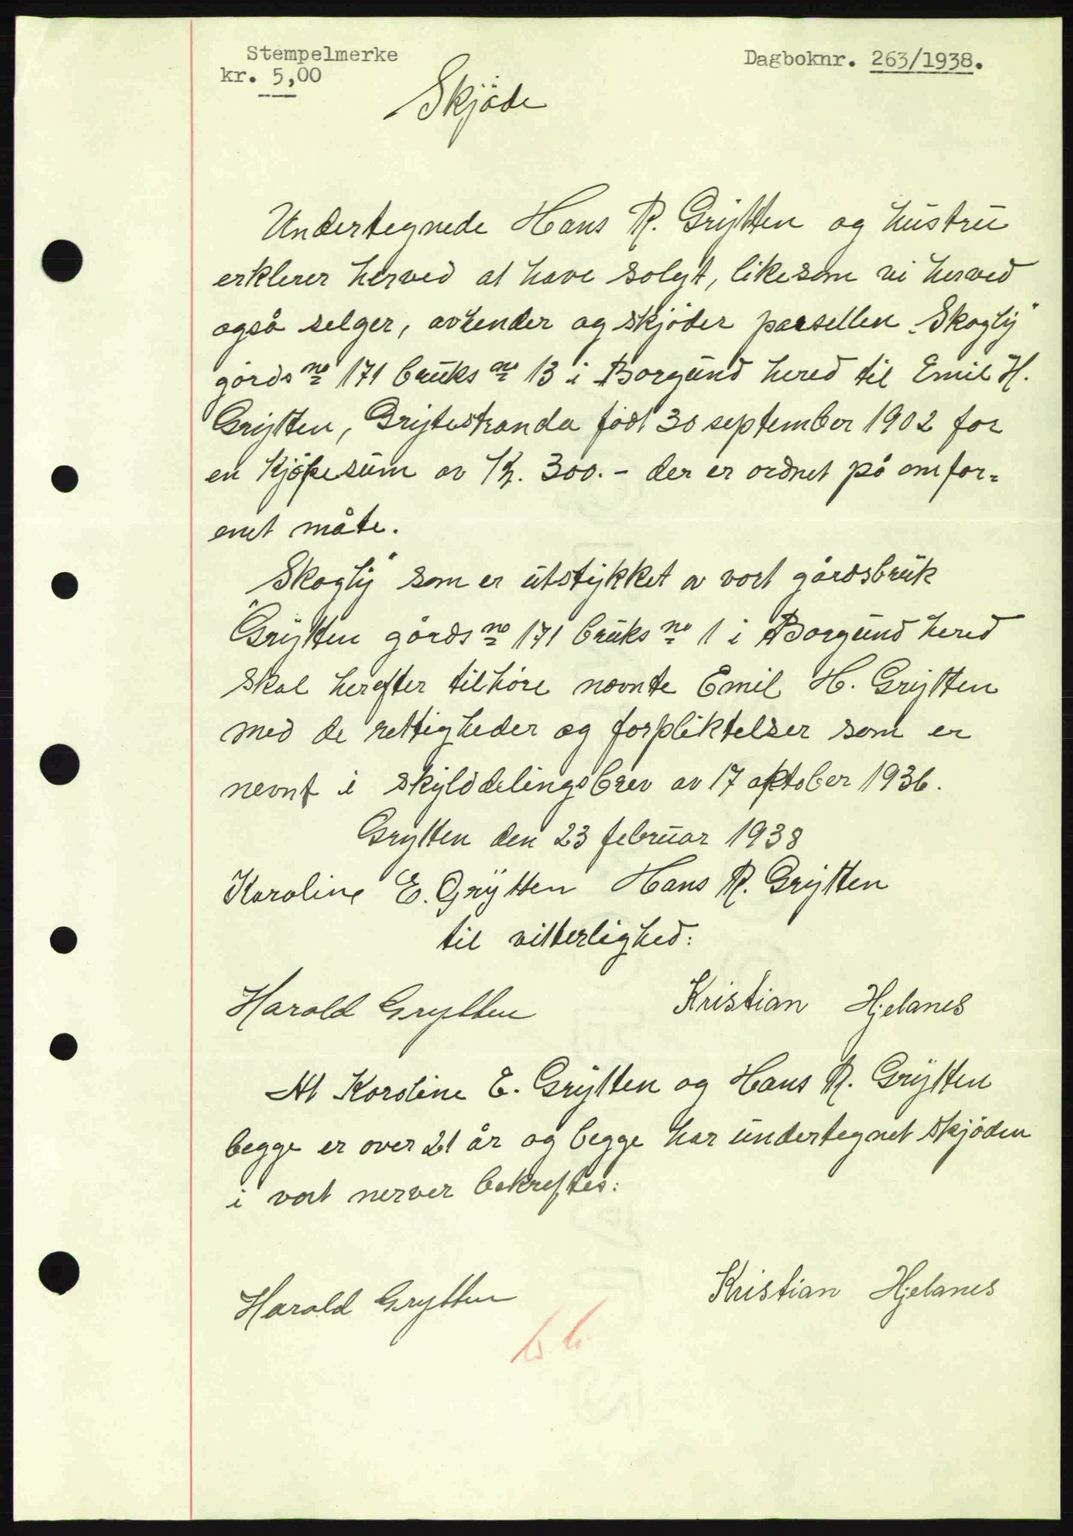 Stempelmerke
kr. 5,00
Dagboknr. 263/1938.
Skjöde
Undertegnede Hans R. Grytten og hustru
erklerer herved at have solgt, likesom vi herved
også selger, avhender og skjöder parsellen „Skogly”
gårds no 171 bruks no 13 i Borgund hered til Emil H.
Grytten, Grytestranda født 30 september 1902 for
en kjöpesum av Kr. 300.- der er ordnet på omfor=
enet måte.
„Skogly” som er utstykket av vort gårdsbruk
Grytten gårds no 171 bruks no 1 i Borgund hered
skal herefter tilhöre nevnte Emil H. Grytten
med de rettigheder og forpliktelser som er
nevnt i skylddelingsbrev av 17 oktober 1936.
Grytten den 23 februar 1938
Karoline E. Grytten Hans R. Grytten
til vitterlighed:
Harald Grytten Kristian Hjelanes
At Karoline E. Grytten og Hans R. Grytten
begge er over 21 år og begge har undertegnet skjöden
i vort nerver bekreftes:
Harald Grytten Kristian Hjelanes